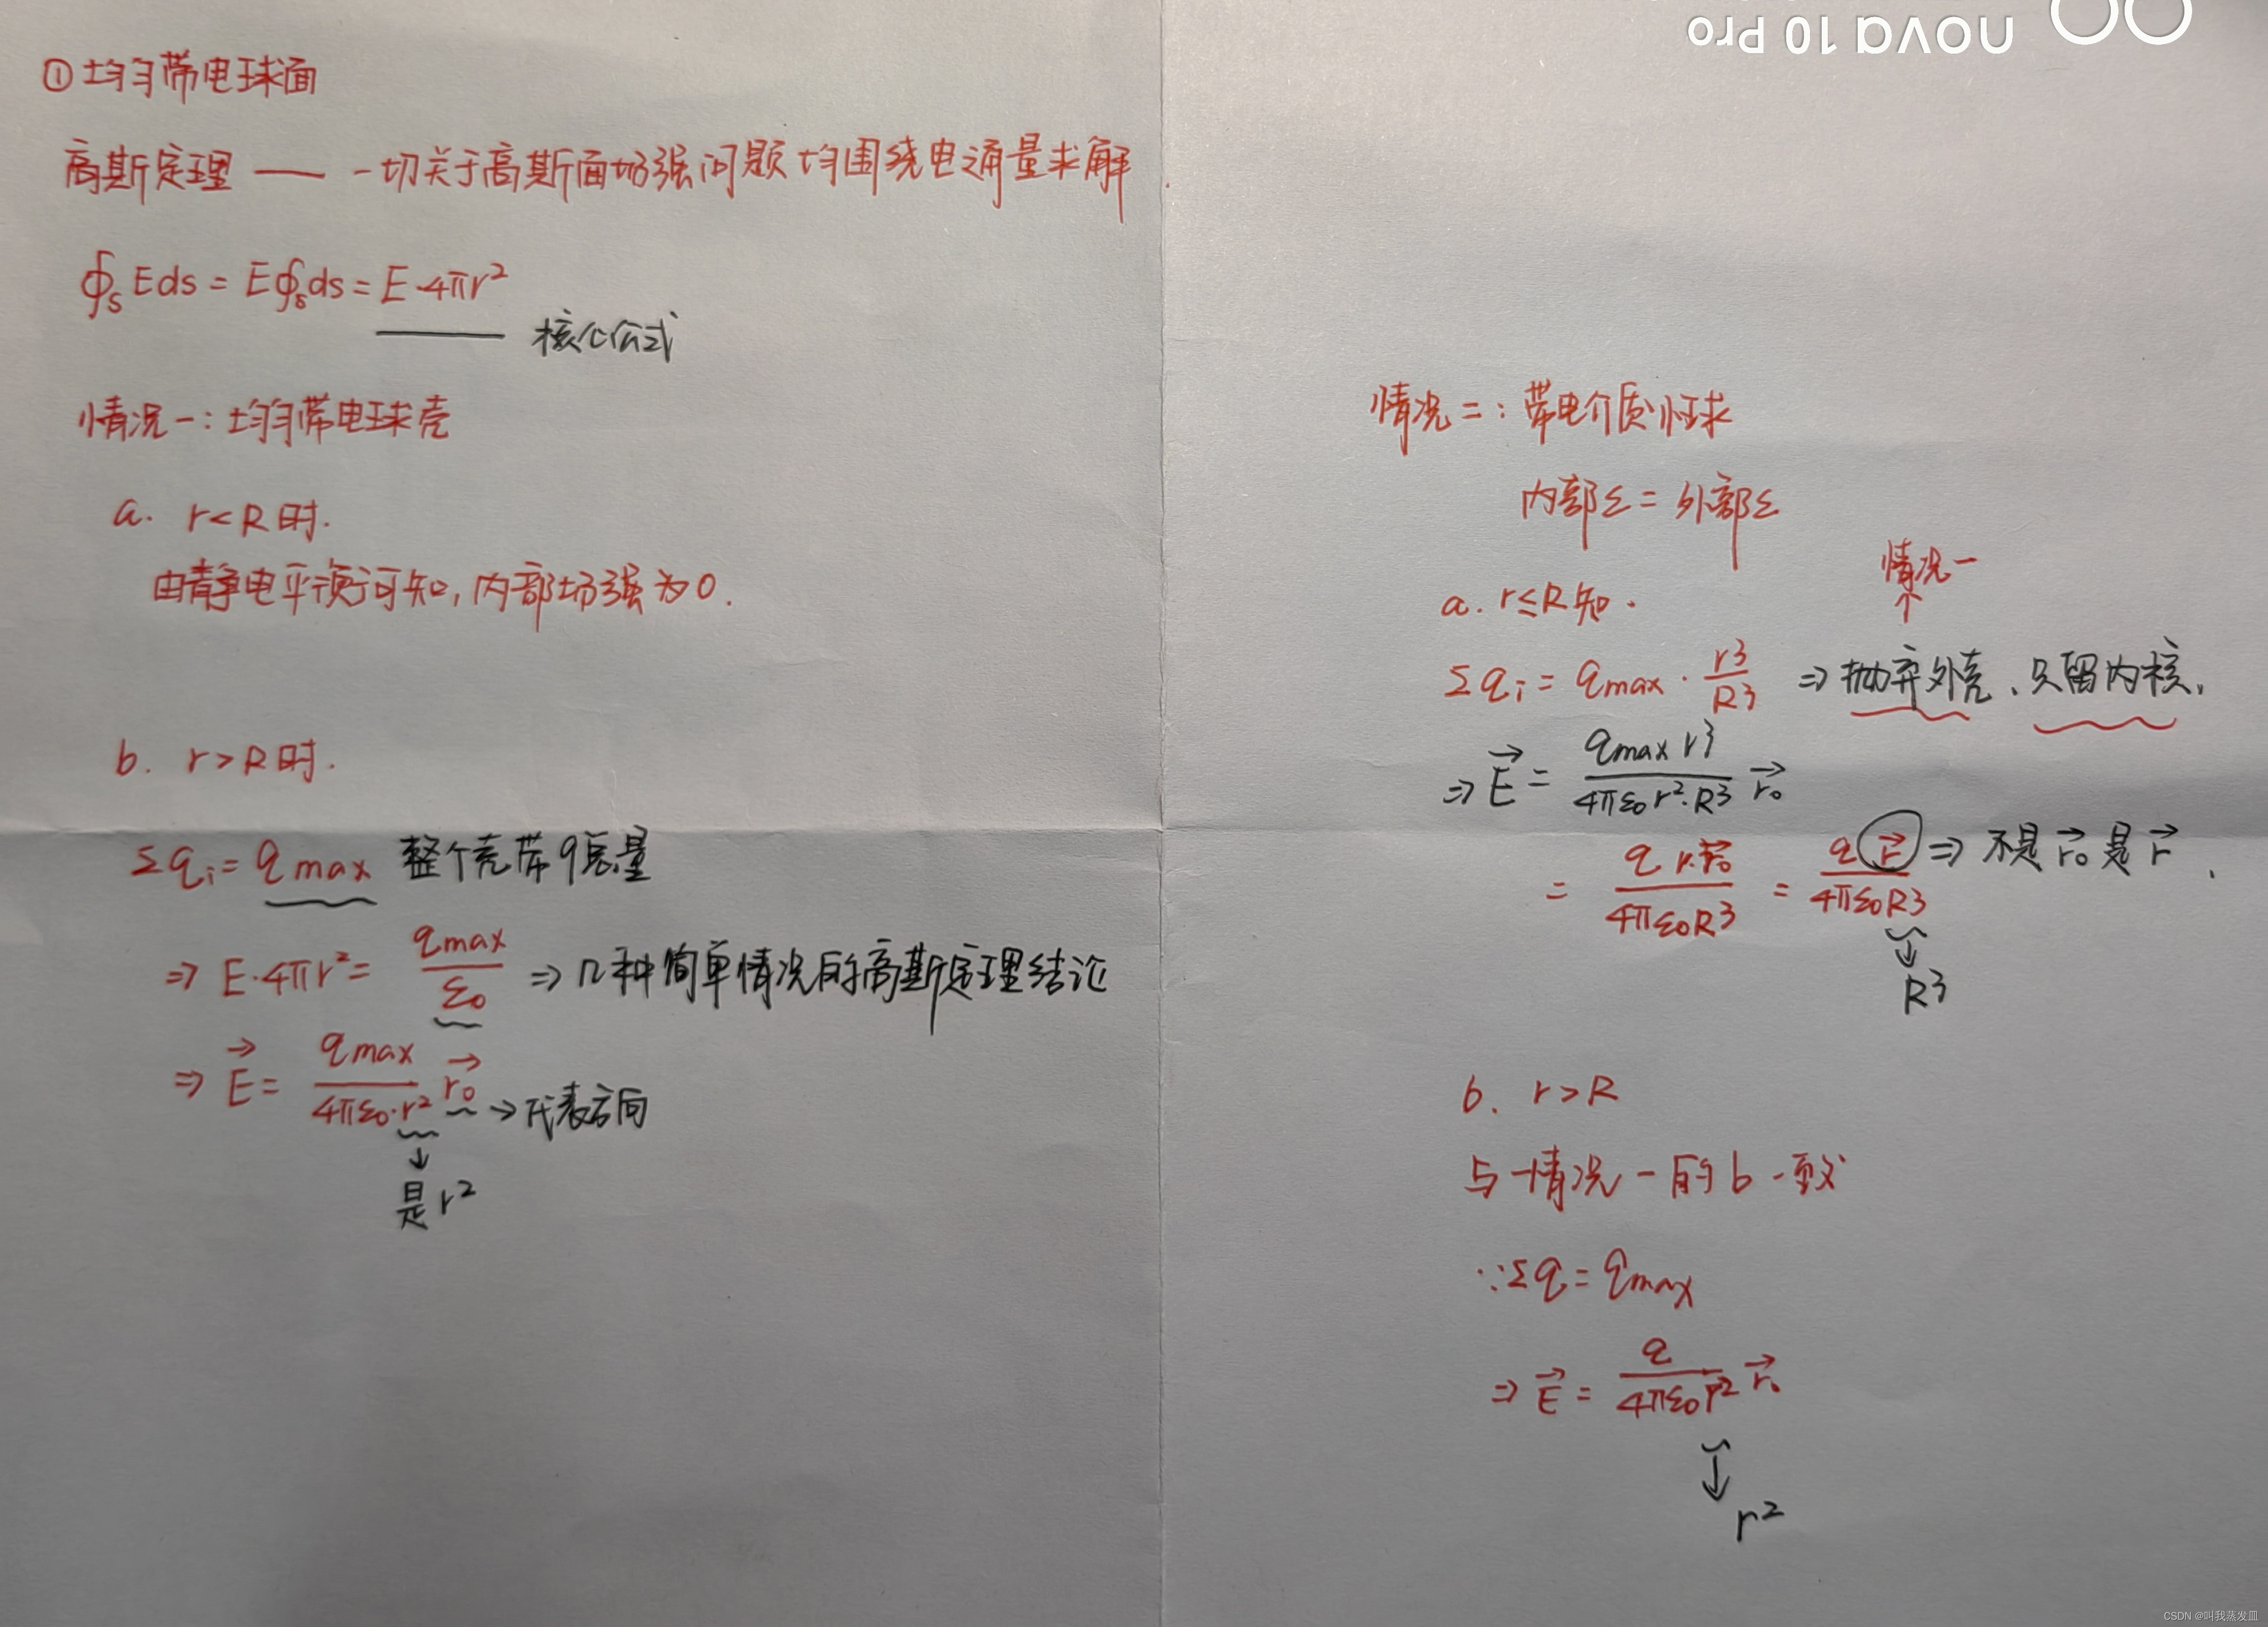 nova 10 Pro
① 均匀带电球面
高斯定理 —— 一切关于高斯面场强问题均围绕电通量求解.
∮s Eds = E∮s ds = E·4πr²
核心公式
情况一: 均匀带电球壳
a. r<R时.
由静电平衡可知, 内部场强为0.
b. r>R时.
Σqi = qmax 整个壳带q总量
⇒ E·4πr² = qmax/ε0 ⇒ 几种简单情况的高斯定理结论
⇒ E⃗ = qmax/(4πε0·r²) r⃗0 → 代表方向
↓
是r²
情况二: 带电介质性球
内部ε = 外部ε
情况一
↑
a. r≤R知.
Σqi = qmax · r³/R³ ⇒ 抛弃外壳、只留内核,
⇒ E⃗ = qmax r³/(4πε0r²·R³) r⃗0
= q r·r⃗0/(4πε0R³) = q r⃗/(4πε0R³) ⇒ 不是r⃗0是r⃗.
↓
R³
b. r>R
与情况一的b一致
∵Σq = qmax
⇒ E⃗ = q/(4πε0r²) r⃗0
↓
r²
CSDN @叫我蒸发皿